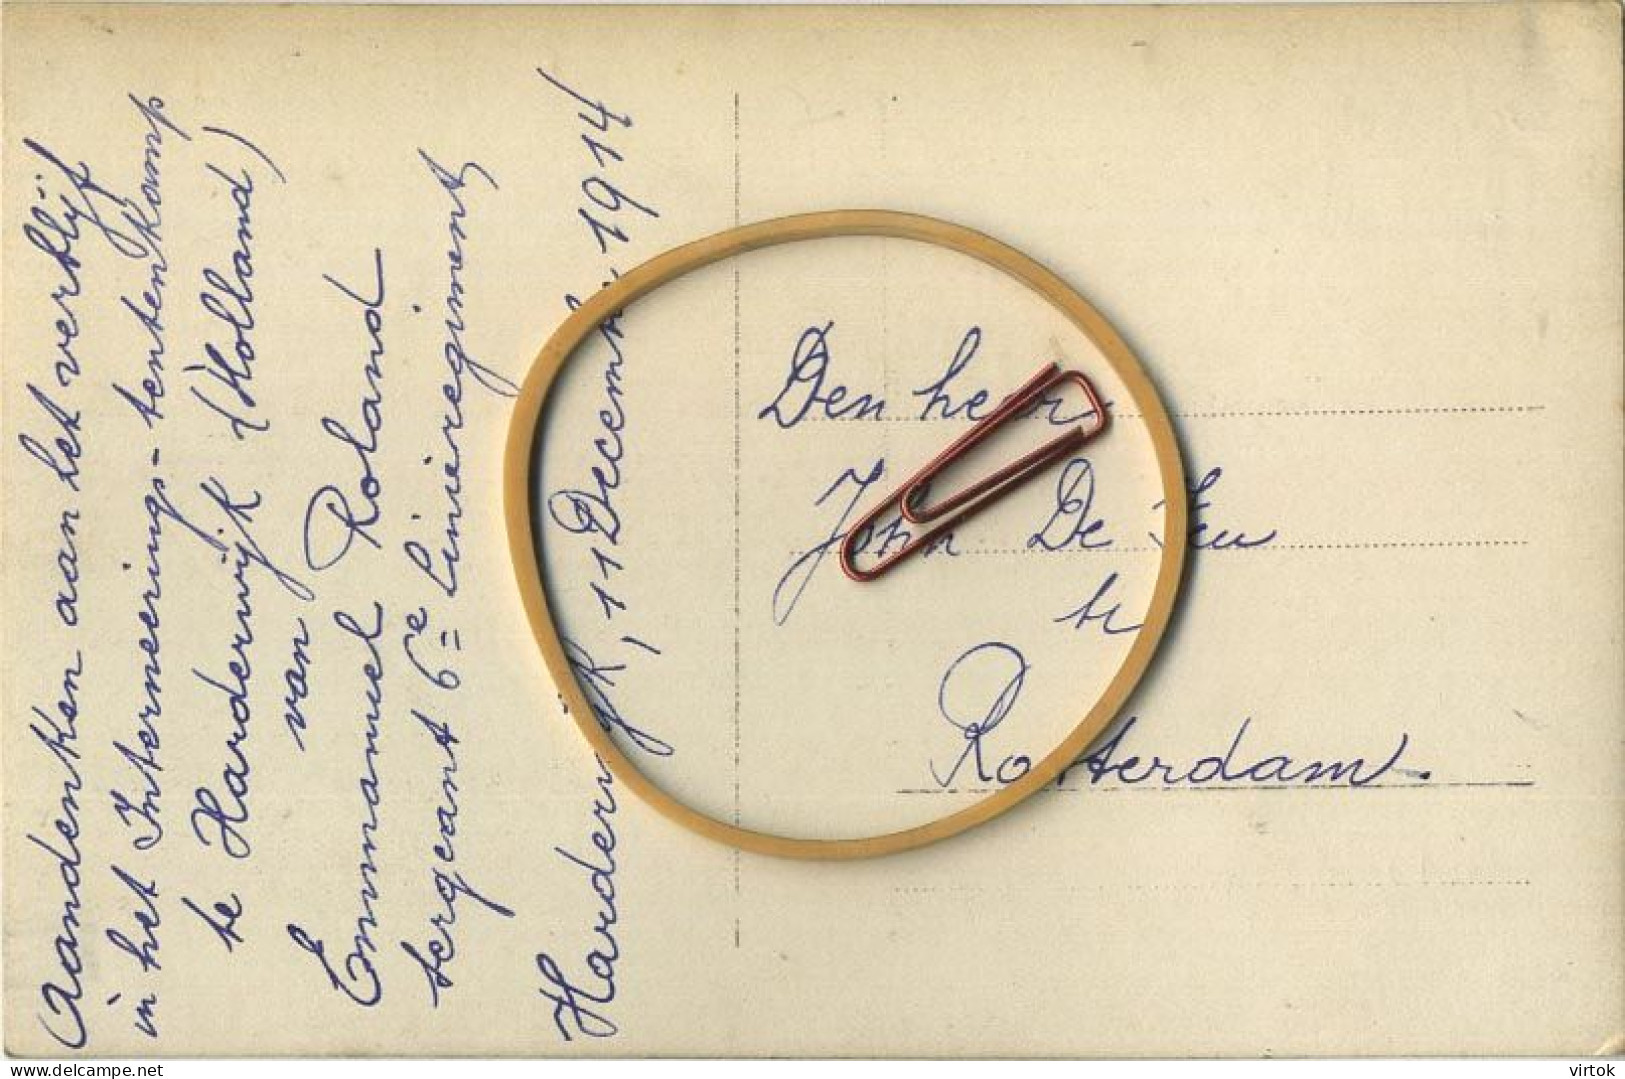 Aandenken aan het verblijf
in het Interneerings-tentenkamp
te Harderwijk (Holland)
van
Emmanuel Roland
sergeant 6e Linieregiment
Harderwijk, 11 Decemb. 1914
Den heer
John De
te
Rotterdam.
virtok